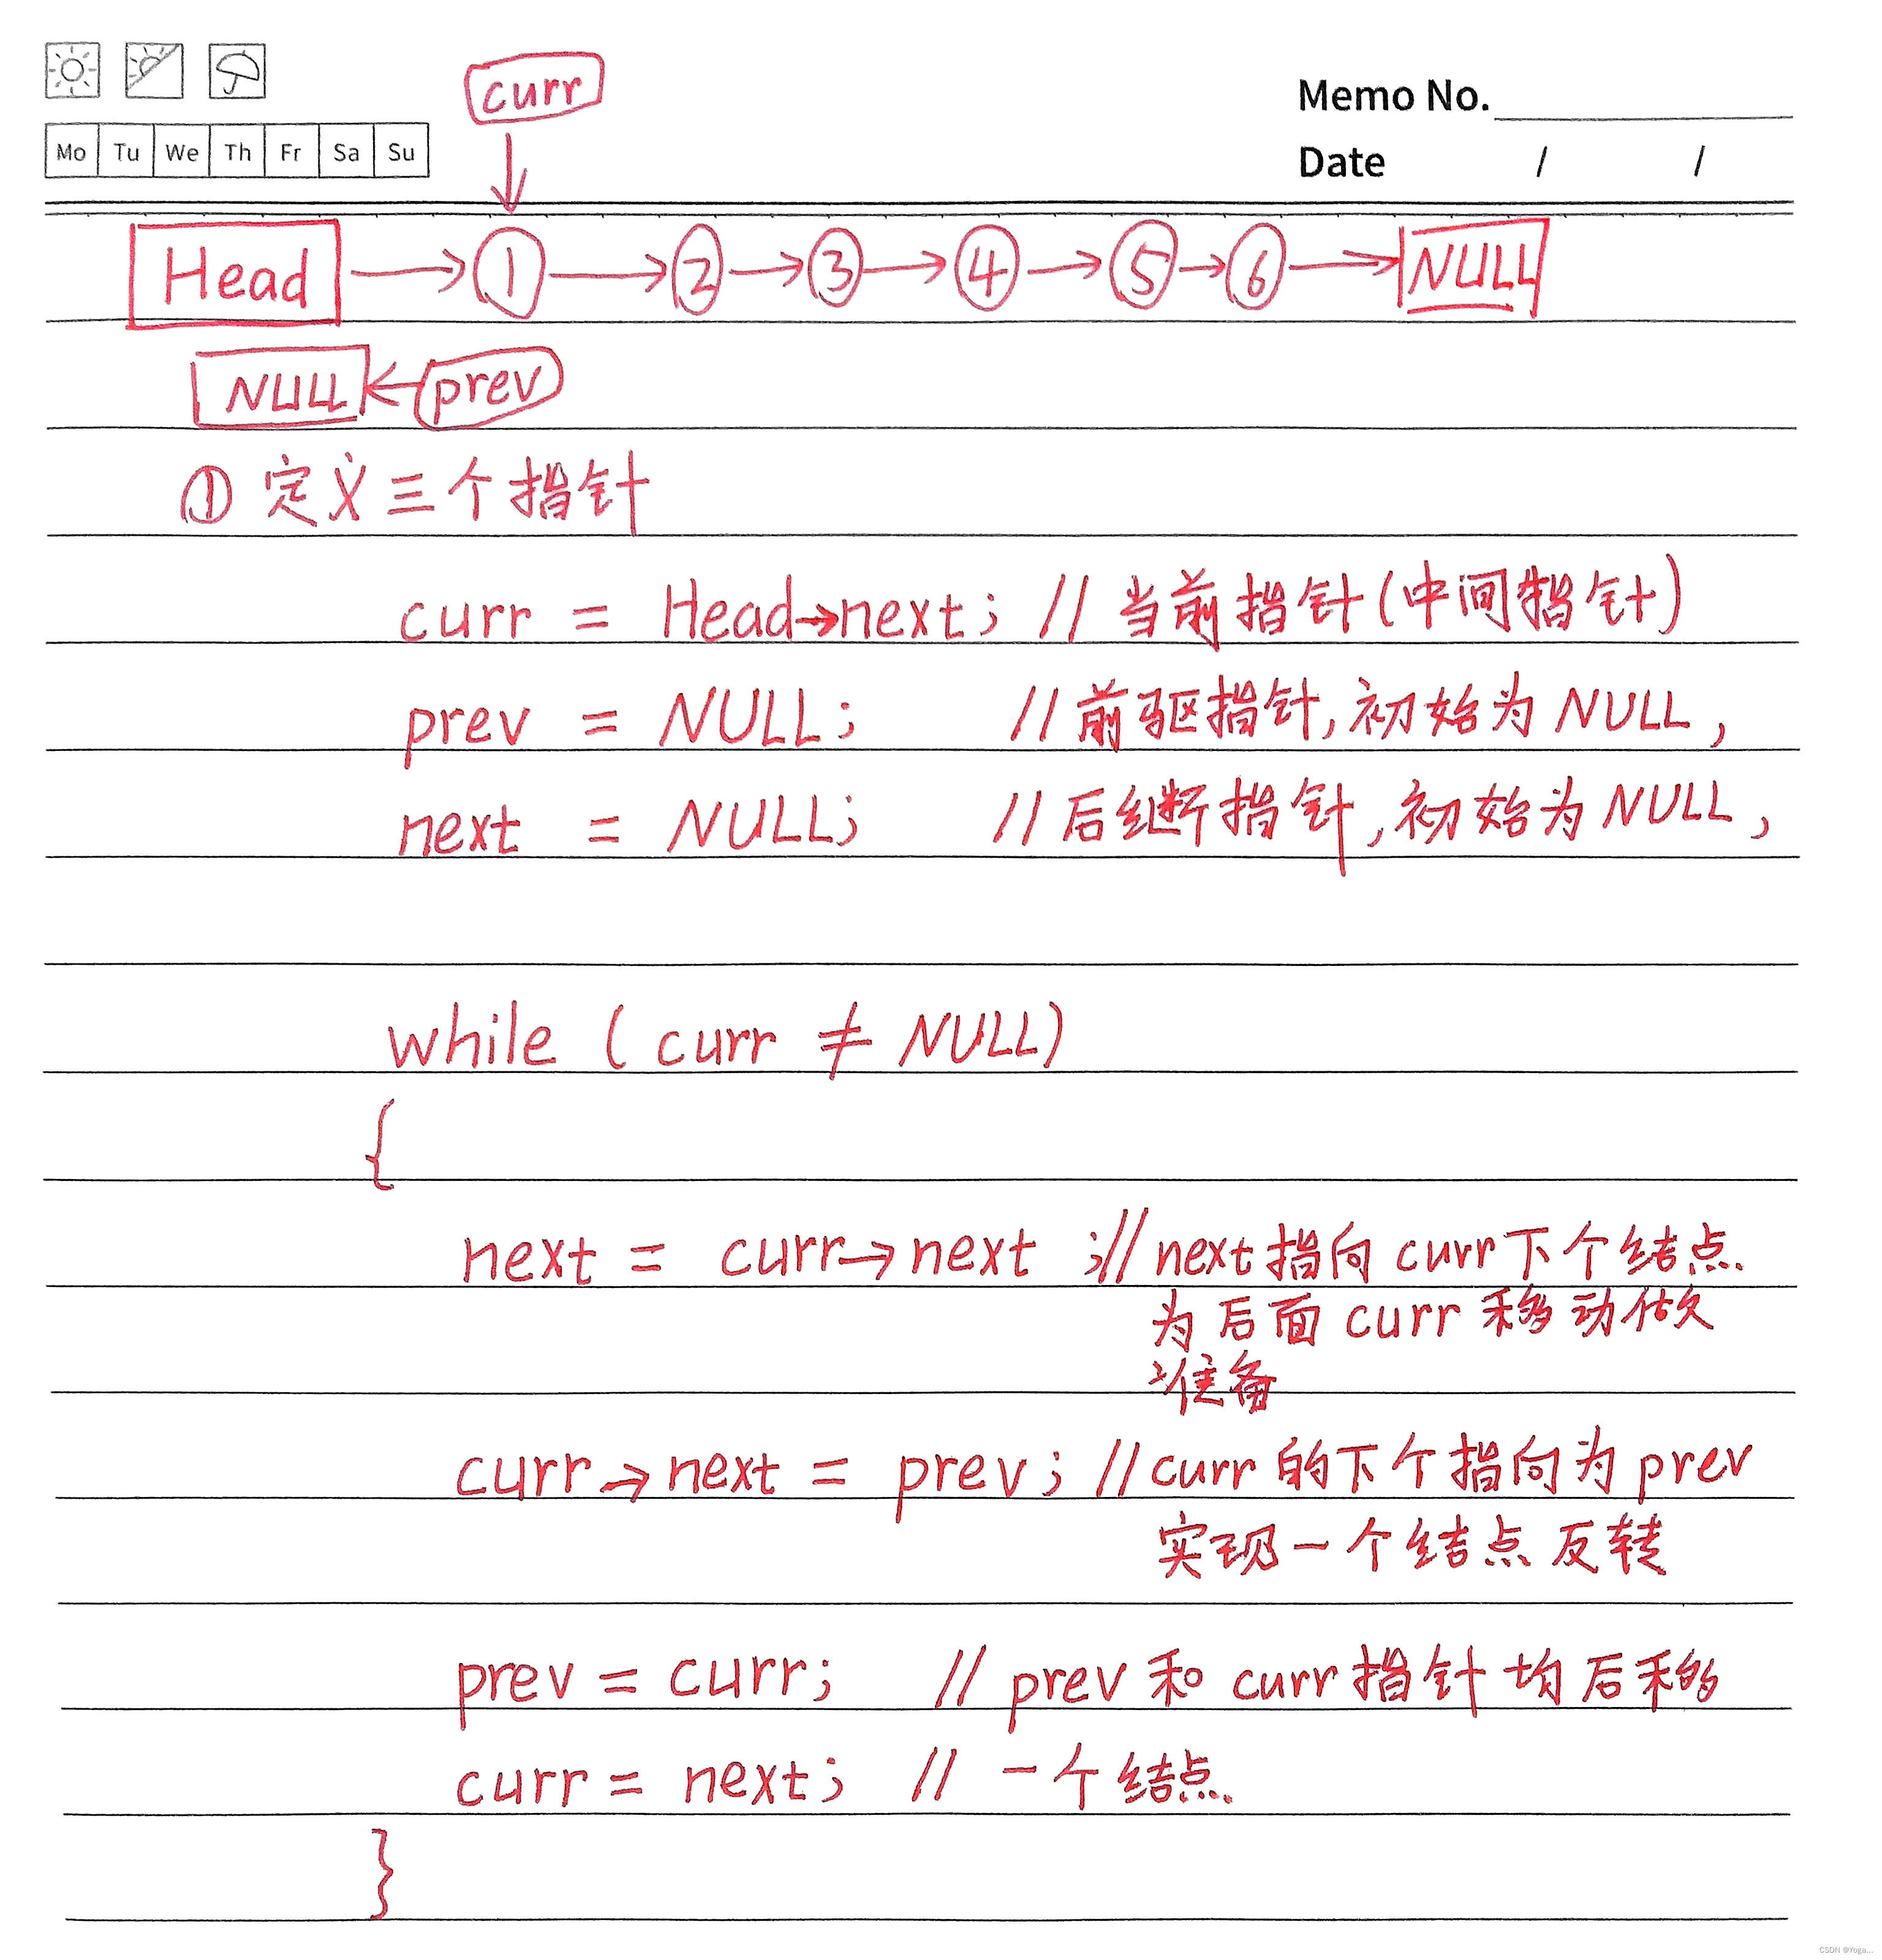 curr
Memo No.
Mo Tu We Th Fr Sa Su
Date / /
Head → ① → ② → ③ → ④ → ⑤ → ⑥ → NULL
NULL ← prev
① 定义三个指针
curr = Head→next; // 当前指针(中间指针)
prev = NULL; // 前驱指针,初始为 NULL,
next = NULL; // 后继指针,初始为 NULL,
while ( curr ≠ NULL)
{
next = curr→next ;// next 指向 curr 下个结点
为后面 curr 移动做
准备
curr→next = prev; // curr 的下个指向为 prev
实现一个结点反转
prev = curr; // prev 和 curr 指针均后移
curr = next; // 一个结点.
}
CSDN @Yoga...